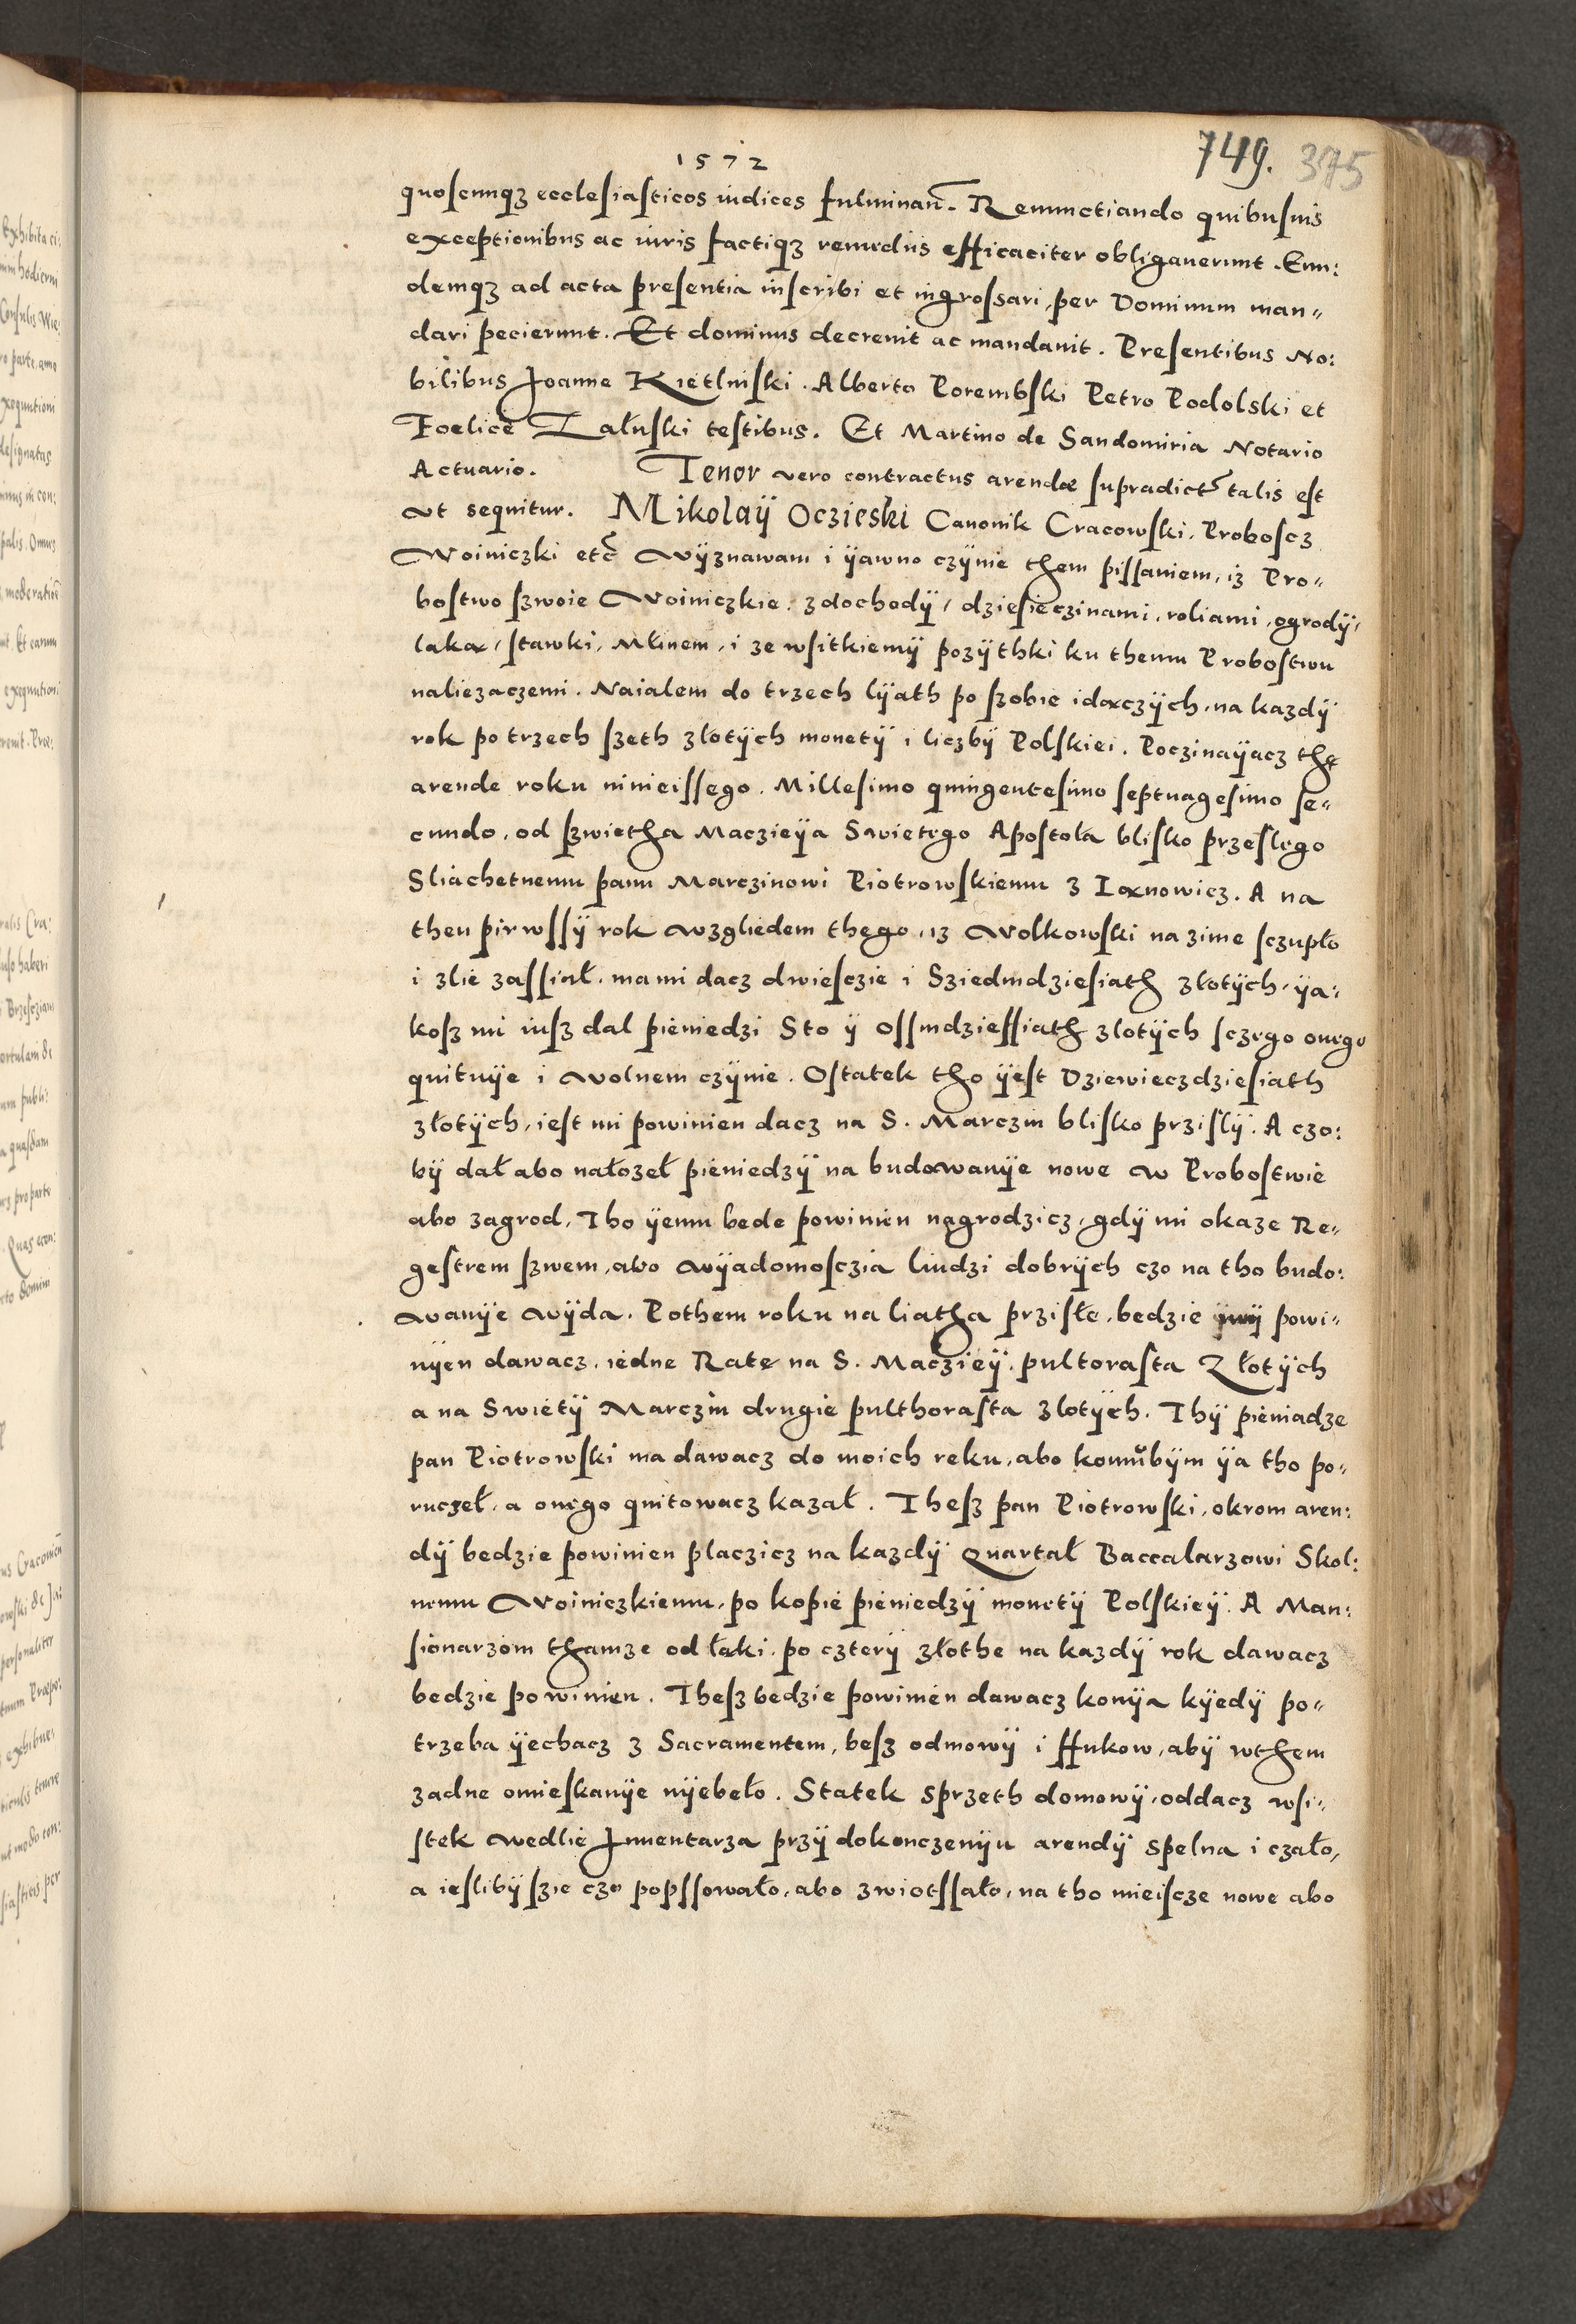 1572
749. 375
quoscunqꝫ ecclesiasticos iudices fulminan̄. Renunctiando quibusuis
exceptionibus ac iuris factiqꝫ remediis efficaciter obligauerunt. Eun:
demqꝫ ad acta presentia inscribi et ingrossari, per Dominum man„
dari pecierunt. Et dominus decreuit ac mandauit. Presentibus No:
bilibus Joanne Kietlinski. Alberto Porembski Petro Podolski et
Foelice Załuski testibus. Et Martino de Sandomiria Notario
Actuario. Tenor vero contractus arendæ supradict̄ talis est
ut sequitur. Mikolaÿ Oczieski Canonik Cracowski, Proboscz
Woiniczki etc̄ Wÿznawam i ÿawno czÿnie them pissaniem, iz Pro„
bostwo szwoie Woiniczkie, z dochodÿ, dziesieczinami, roliami, ogrodÿ,
laką, stawki, Młinem, i ze wsitkiemÿ pozÿthki ku themu Probostwu
naliezaczemi. Naialem do trzech lÿath po szobie idączÿch, na kazdÿ
rok po trzech szeth złotÿch monetÿ i liczbÿ Polskiei. Poczinaÿacz thę
arende roku ninieissego. Millesimo quingentesimo septuagesimo se„
cundo, od szwietha Maczieÿa Swietego Apostola blisko przeslego
Sliachetnemu panu Marczinowi Piotrowskiemu z Ianowicz. A na
then pirwssÿ rok wzgliedem thego, iz Wolkowski na zime sczupło
i zlie zassiał, ma mi dacz dwiesczie i Sziedmdziesiath złotÿch, ÿa:
kosz mi iusz dal pieniedzi Sto ÿ Ossmdziessiath zlotÿch sczego onego
quituÿe i wolnem czÿnie. Ostatek tho ÿest Dziewieczdziesiath
złotÿch, iest mi powinien dacz na S. Marczin blisko przislÿ. A czo:
bÿ dał abo nałozeł pieniedzÿ na budowanÿe nowe w Probostwie
abo zagrod, Tho ÿemu bede powinien nagrodzicz, gdÿ mi okaze Re„
gestrem szwem, abo wÿadomosczia liudzi dobrÿch czo na tho budo:
wanÿe wÿda. Pothem roku na liatha przisłe, bedzie powi„
nÿen dawacz, iedne Rate na S. Maczieÿ, pultorasta Złotÿch
a na Swietÿ Marczin drugie pulthorasta zlotÿch. Thÿ pieniadze
pan Piotrowski ma dawacz do moich reku, abo komubÿm ÿa tho po„
ruczeł, a onego quitowacz kazał. Thesz pan Piotrowski, okrom aren:
dÿ bedzie powinien placzicz na kazdÿ Quartał Baccalarzowi Skol:
nemu Woiniczkiemu, po kopie pieniedzÿ monetÿ Polskieÿ. A Man:
sionarzom thamze od łąki, po czterÿ złothe na kazdÿ rok dawacz
bedzie powinien. Thesz bedzie powinien dawacz konÿa kÿedÿ po„
trzeba ÿechacz z Sacramentem, besz odmowÿ i ffukow, abÿ wthem
zadne omieskanÿe nÿebeło. Statek sprzeth domowÿ, oddacz wsi„
stek wedlie Inuentarza przÿ dokonczenÿu arendÿ spelna i czało,
a ieslibÿ szie czo popssowało, abo zwiotssało, na tho mieiscze nowe abo